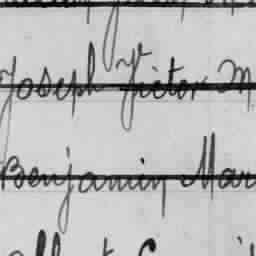 Joseph Victor M
Benjamin Mar